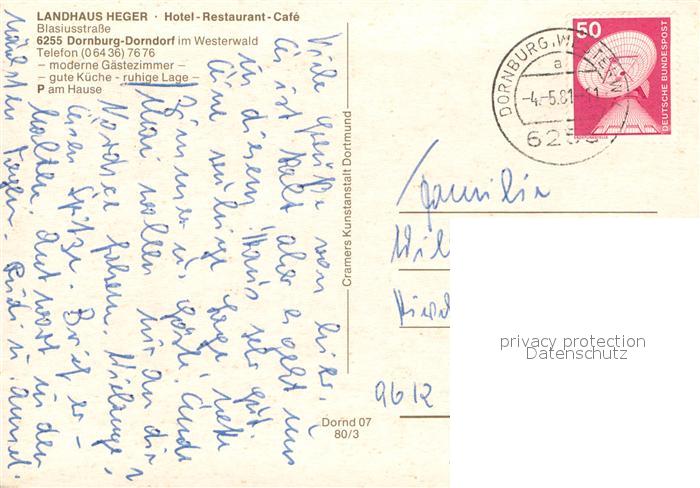 LANDHAUS HEGER · Hotel-Restaurant-Café
Blasiusstraße
6255 Dornburg-Dorndorf im Westerwald
Telefon (06436) 7676
– moderne Gästezimmer –
– gute Küche - ruhige Lage –
P am Hause
Viele Grüße von hier.
Es ist kalt aber es geht uns
in diesem Haus sehr gut.
Eine ruhige Lage nette
Zimmer u. Gäste. Ende
Mai wollen wir an die
Nordsee fahren.
einen Spitze. Brief er-
halten. Antwort in den
nächsten Tagen.
Cramers Kunstanstalt Dortmund
Dornd 07
80/3
50
DEUTSCHE BUNDESPOST
DORNBURG, WESTERW
a
-4.-5.81-11
6255
Familie
9612
privacy protection
Datenschutz